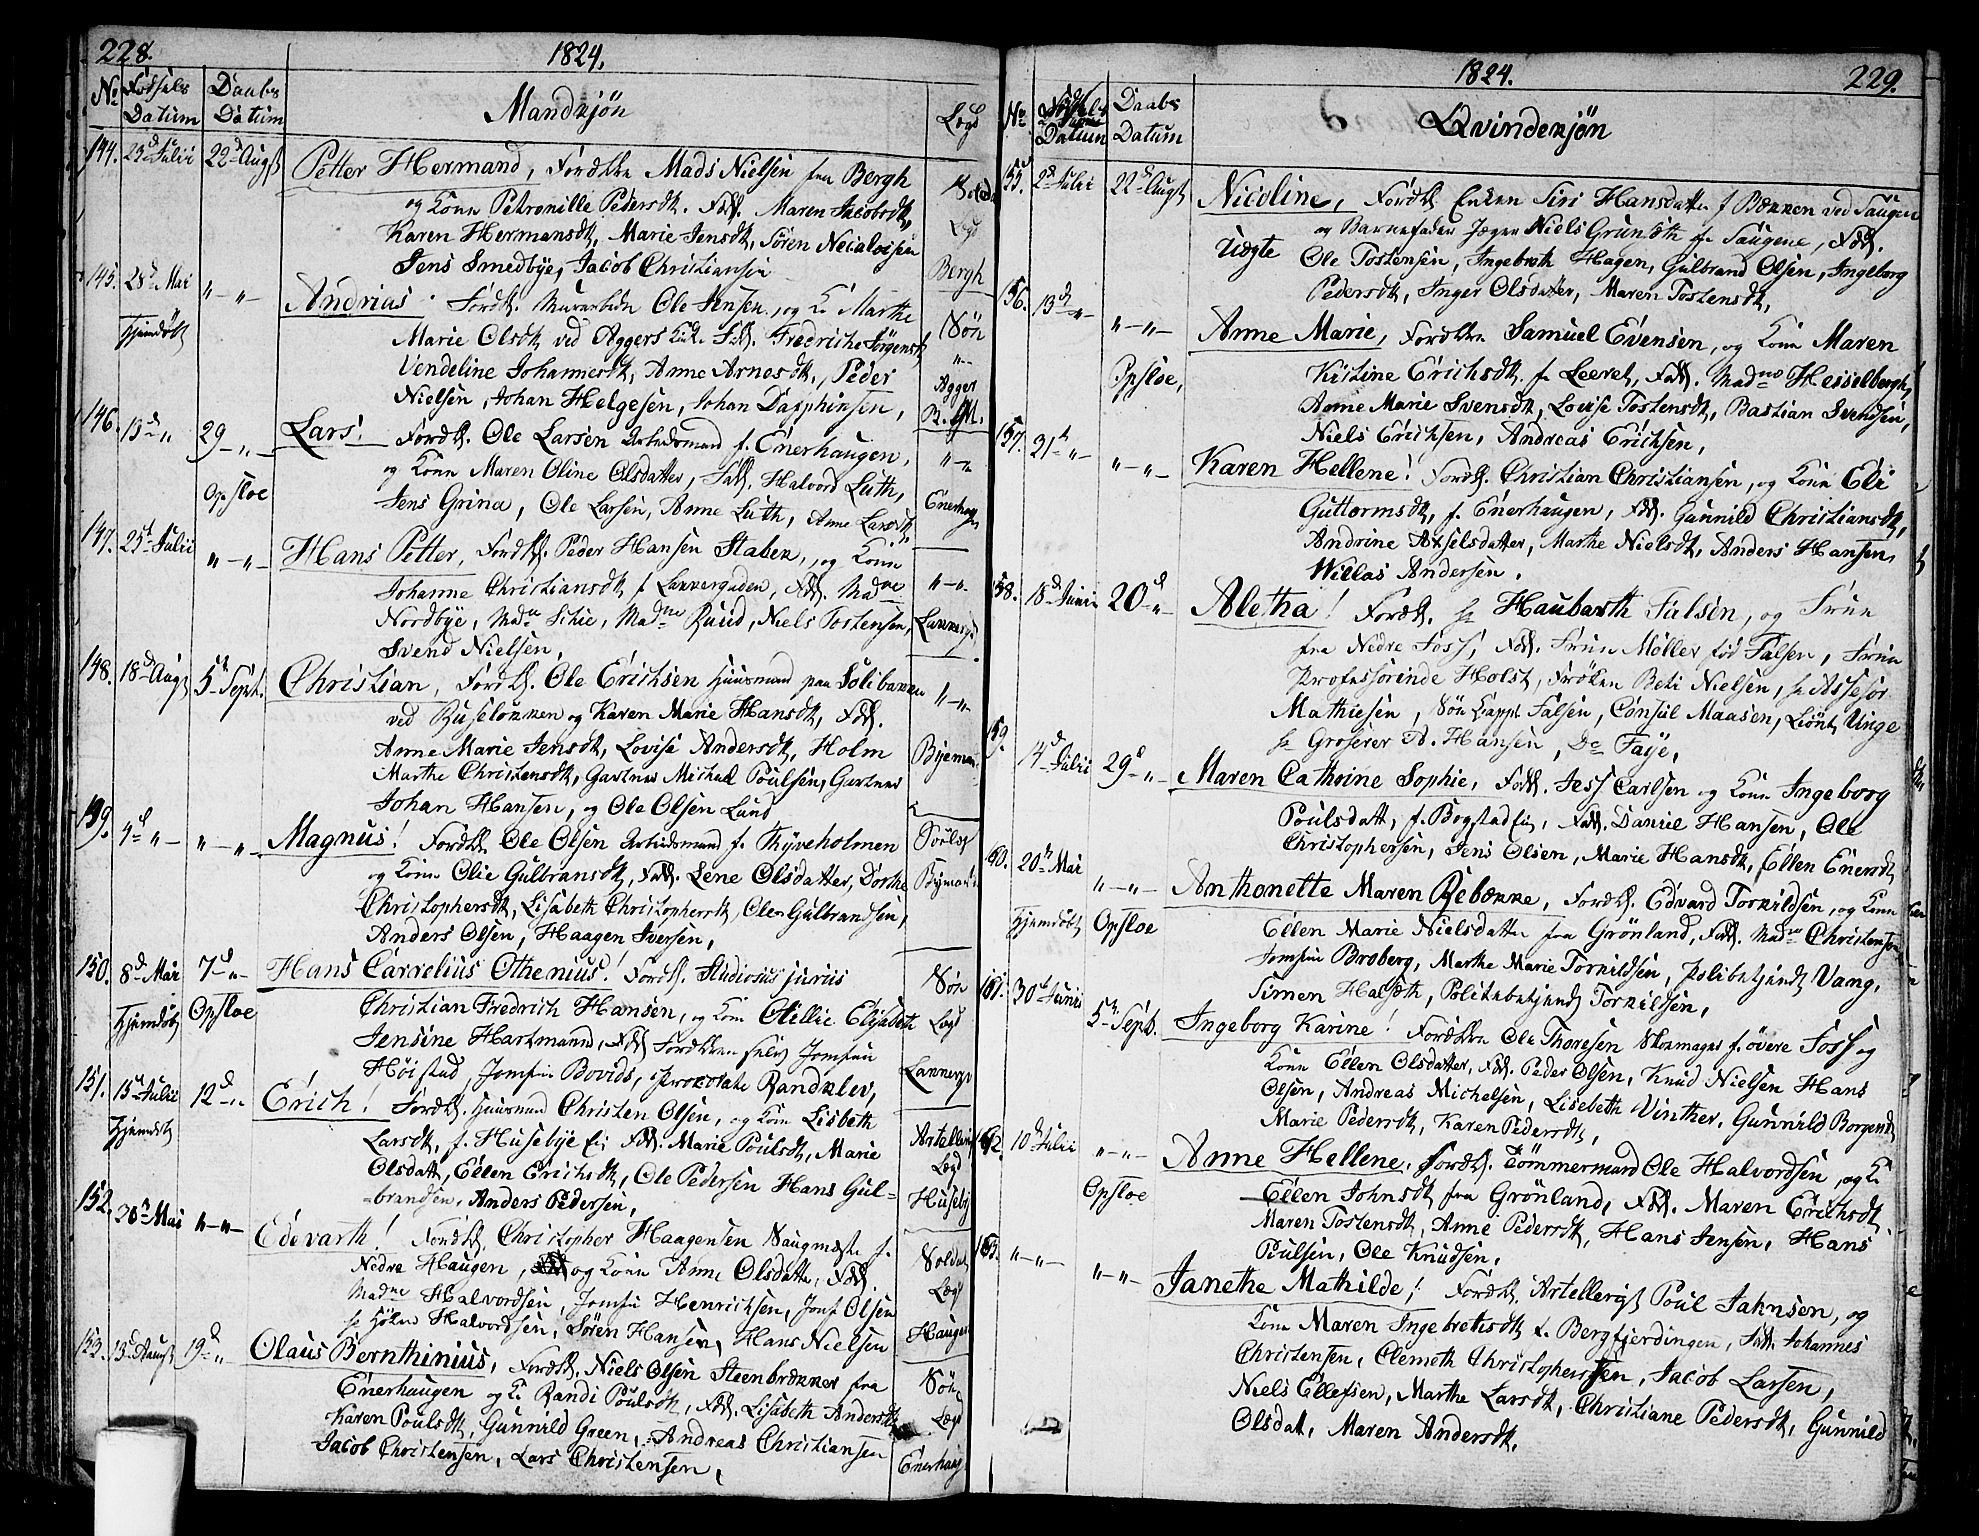 228.
1824.
No Fødsels Datum
Daabs Datum
Mandkjøn
Lægd
144. 23d Julii 22d Augst Petter Hermand, Forældre Mads Nielsen fra Bergh
og Kone Petronille Pedersdt. Fadd. Maren Jacobsdt,
Karen Hermansdt, Marie Jensdt, Søren
Jens Smedbye, Jacob Christiansen
Lægd
Bergh
145. 28d Mai " — " — Andrias Foræld. Ole Jensen, og K. Marthe
Hjemdøbt
Marie Olsdt ved Aggers Fadd. Fredriche Jørgensdt,
Vendeline Johannesdt, Anne Arnesdt, Peder
Nielsen, Johan Helgesen, Johan Dapphinsen,
Søn
Agger
146. 13d " 29 — " — Lars! Foræld. Ole Larsen Arbeidsmand f. Enerhaugen,
og Kone Maren Oline Olsdatter, Fadd. Halvord Luth,
Opsloe
Jens Grina, Ole Larsen, Anne Luth, Anne Larsdt,
Enerhaug
147. 25d Julii " — " — Hans Petter, Foræld. Peder Hansen Staber, og Kone
Johanne Christiansdt f Lakkergaden, Fadd. Madme
Nordbye, Madme Schie, Madme Ruud, Niels Tostensen,
Svend Nielsen,
148. 18d Augst 5te Sept. Christian, Foræld. Ole Erichsen Huusmand paa Solibakken
ved Ruseløkken og Karen Marie Hansdt, Fadd.
Anne Marie Jensdt, Lovise Andersdt, Holm
Marthe Christensdt, Gartner Michael Poulsen, Gartner
Johan Hansen, og Ole Olsen Lund
149. 4d " — " — " — Magnus! Foræld. Ole Olsen Arbeidsmand f. Thyveholmen
og Kone Olie Gulbransdt, Fadd. Lene Olsdatter, Dorthe
Christophersdt, Lisabeth Christophersdt, Ole Gulbrandsen,
Anders Olsen, Haagen Iversen,
150. 8d Mai 7d " — Hans Carrelius Othenius! Foræld. Studiosus juriis
Hjemdøbt Opsloe Christian Fredrich Hansen, og Kone Otillie Elisabeth
Jensine Hartmann, Fadd Forældrene selv, Jomfru
Høistad, Jomfru Bovids, Prokolate Randklev,
Søn
Lægd
151. 15d Julii 12d " — Erich! Foræld. Huusmand Christen Olsen, og Kone Lisbeth
Hjemdøbt
Larsdt, f. Husebye Fadd. Marie Poulsdt, Marie
Olsdatt, Ellen Erichsdt, Ole Pedersen Hans Gul-
brandsen, Anders Pedersen,
Lægd
Huseby
152. 20d Mai " — " — Edevarth! Foræld. Christopher Haagensen Saugmester f.
Nedre Haugen, og Kone Anne Olsdatter, Fadd.
Madme Halvordsen, Jomfru Henrichsen, Jomf Olsen
Hr Høker Halvordsen, Søren Hansen, Hans Nielsen
Soldat
Lægd
Haugen
153. 13d August 19d " Olaus Bernthinius, Foræld. Niels Olsen Steenbrækker fra
Enerhaugen og K. Randi Poulsdt, Fadd. Lisabeth Andersdt
Karen Poulsdt, Gunnild Green, Andreas Christiansen
Jacob Christensen, Lars Christensen,
Søn
Lægd
Enerhaug
1824.
229.
No Datum
Daabs Datum
Qvindekjøn
55. 2d Julii 22d Augst Nicoline, Foræld. Enken Siri Hansdatter f Bakken ved Saugen
og Barnefader Jæger Niels Grunseth fr Saugene, Fadd.
Uægte Ole Tostensen, Ingebreth Hagen, Gulbrand Olsen, Ingeborg
Pedersdt, Inger Olsdatter, Maren Tostensdt,
156. 13d " — " — " — Anne Marie, Forældre Samuel Evensen, og Kone Maren
Opsloe, Kistine Erichsdt. f. Leeret, Fadd. Madme Hesselbergh,
Anne Marie Svensdt, Lovise Tostensdt, Bastian Svendsen,
Niels Erichsen, Andreas Erichsen,
157. 21d " — " — " — Karen Hellene! Foræld. Christian Christiansen, og Kone Eli
Guttormsdt, f. Enerhaugen, Fadd. Gunnild Christiansdt,
Andrine Axelsdatter, Marthe Nielsdt, Anders Hansen,
Willas Andersen.
58. 18d Junii 20d " Aletha! Foræld. Hr Haubarth Falsen, og Frue
fra Nedre Foss, Fadd. Frue Møller fød Falsen, Frue
Professorinde Holst, Frøken Beti Nielsen, Hr Assesor
Mathiesen, Falsen, Consul Maasen, Liönt Unge
Hr Groserer A. Hansen, Do Faye,
59. 14d Julii 29d " — Maren Cathrine Sophie, Foræld. Jess Carlsen og Kone Ingeborg
Poulsdatt, f. Bogstad, Fadd. Daniel Hansen, Ole
Christophersen, Jens Olsen, Marie Hansdt, Ellen Enersdt
60. 20d Mai " — " — Anthonette Maren Rebekke, Foræld. Edvard Torkildsen, og Kone
Hjemdøbt Opsloe Ellen Marie Nielsdatter fra Grønland, Fadd. Madme Christensen
Jomfru Broberg, Marthe Marie Torkildsen, Polibetjendt Vang,
Simen Halseth, Politebetjendt Torkildsen,
161. 30d Junii 5te Septb. Ingeborg Karine! Forældre Ole Thoresen Skomager f. øvere Foss og
Kone Ellen Olsdatter, Fadd. Peder Olsen, Knud Nielsen Hans
Olsen, Andreas Michelsen, Lisebeth Vinther, Gunnild Borgersdt
Marie Pedersdt, Karen Pedersdt,
162. 10d Julii " — " — Anne Hellene, Foræld. Tömmermand Ole Halvordsen, og K
Opsloe Ellen Johnsdt fra Grønland, Fadd. Maren Erichsdt,
Maren Tostensdt, Anne Pedersdt, Hans Jensen, Hans
Poulsen, Ole Knudsen,
163. " — " — " — " — Janethe Mathilde! Foræld. Artellerist Poul Jahnsen, og
Kone Maren Ingebretsdt f. Bergfjerdingen, Fadd. Johannes
Christensen, Clemeth Christophersen, Jacob Larsen,
Niels Ellefsen, Marthe Larsdt, Christiane Pedersdt, Gunnild
Olsdatt, Maren Andersdt,